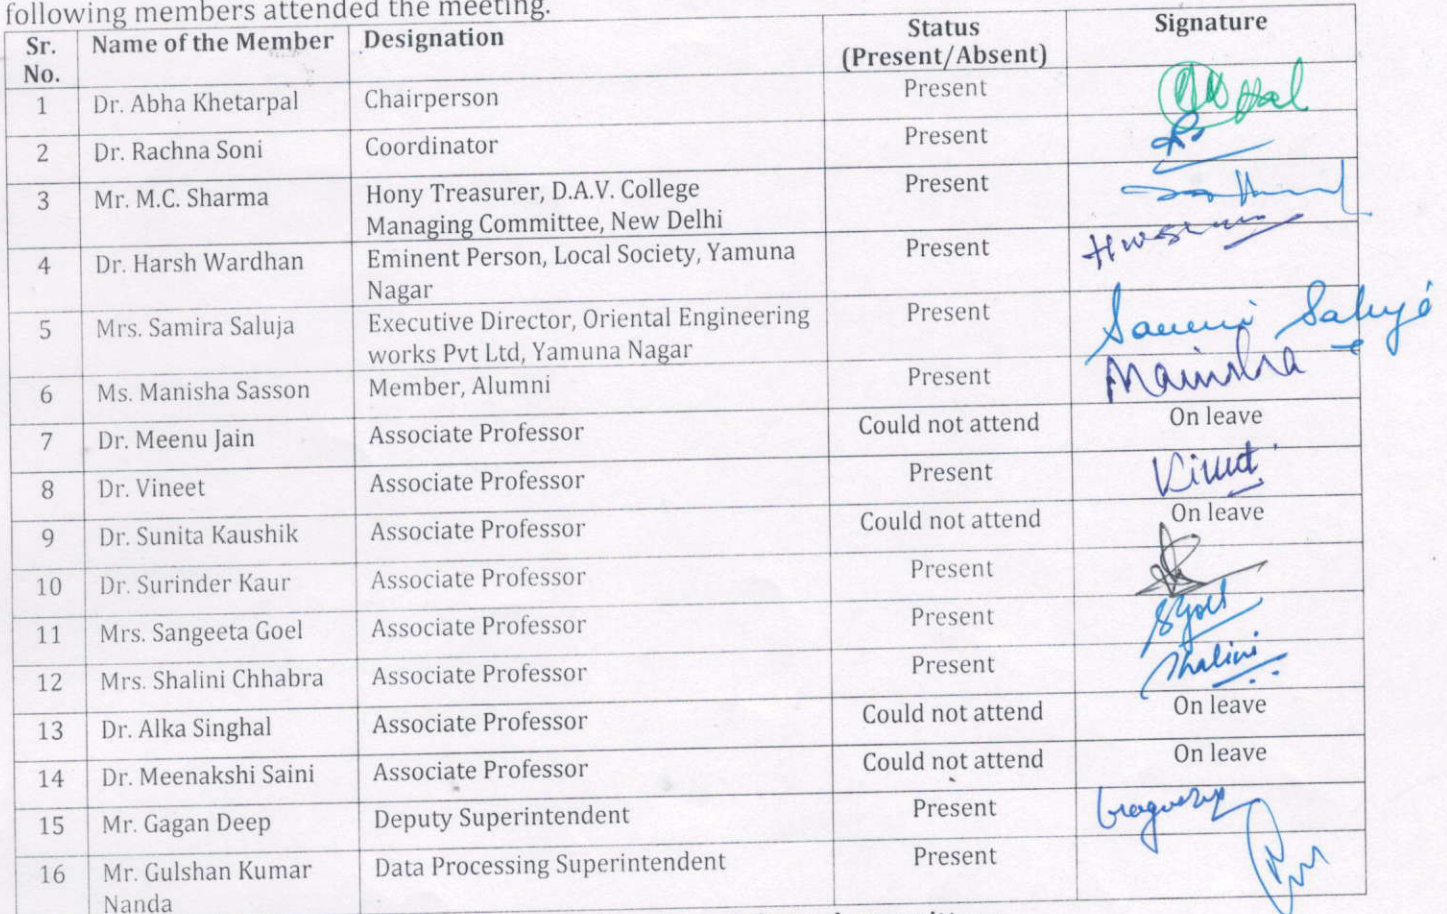 following members attended the meeting.
Sr. No. Name of the Member Designation Status (Present/Absent) Signature
1 Dr. Abha Khetarpal Chairperson Present
2 Dr. Rachna Soni Coordinator Present
3 Mr. M.C. Sharma Hony Treasurer, D.A.V. College Present
Managing Committee, New Delhi
4 Dr. Harsh Wardhan Eminent Person, Local Society, Yamuna Present
Nagar
5 Mrs. Samira Saluja Executive Director, Oriental Engineering Present
works Pvt Ltd, Yamuna Nagar
6 Ms. Manisha Sasson Member, Alumni Present Manisha
7 Dr. Meenu Jain Associate Professor Could not attend On leave
8 Dr. Vineet Associate Professor Present
9 Dr. Sunita Kaushik Associate Professor Could not attend On leave
10 Dr. Surinder Kaur Associate Professor Present
11 Mrs. Sangeeta Goel Associate Professor Present
12 Mrs. Shalini Chhabra Associate Professor Present Shalini
13 Dr. Alka Singhal Associate Professor Could not attend On leave
14 Dr. Meenakshi Saini Associate Professor Could not attend On leave
15 Mr. Gagan Deep Deputy Superintendent Present
16 Mr. Gulshan Kumar Data Processing Superintendent Present
Nanda